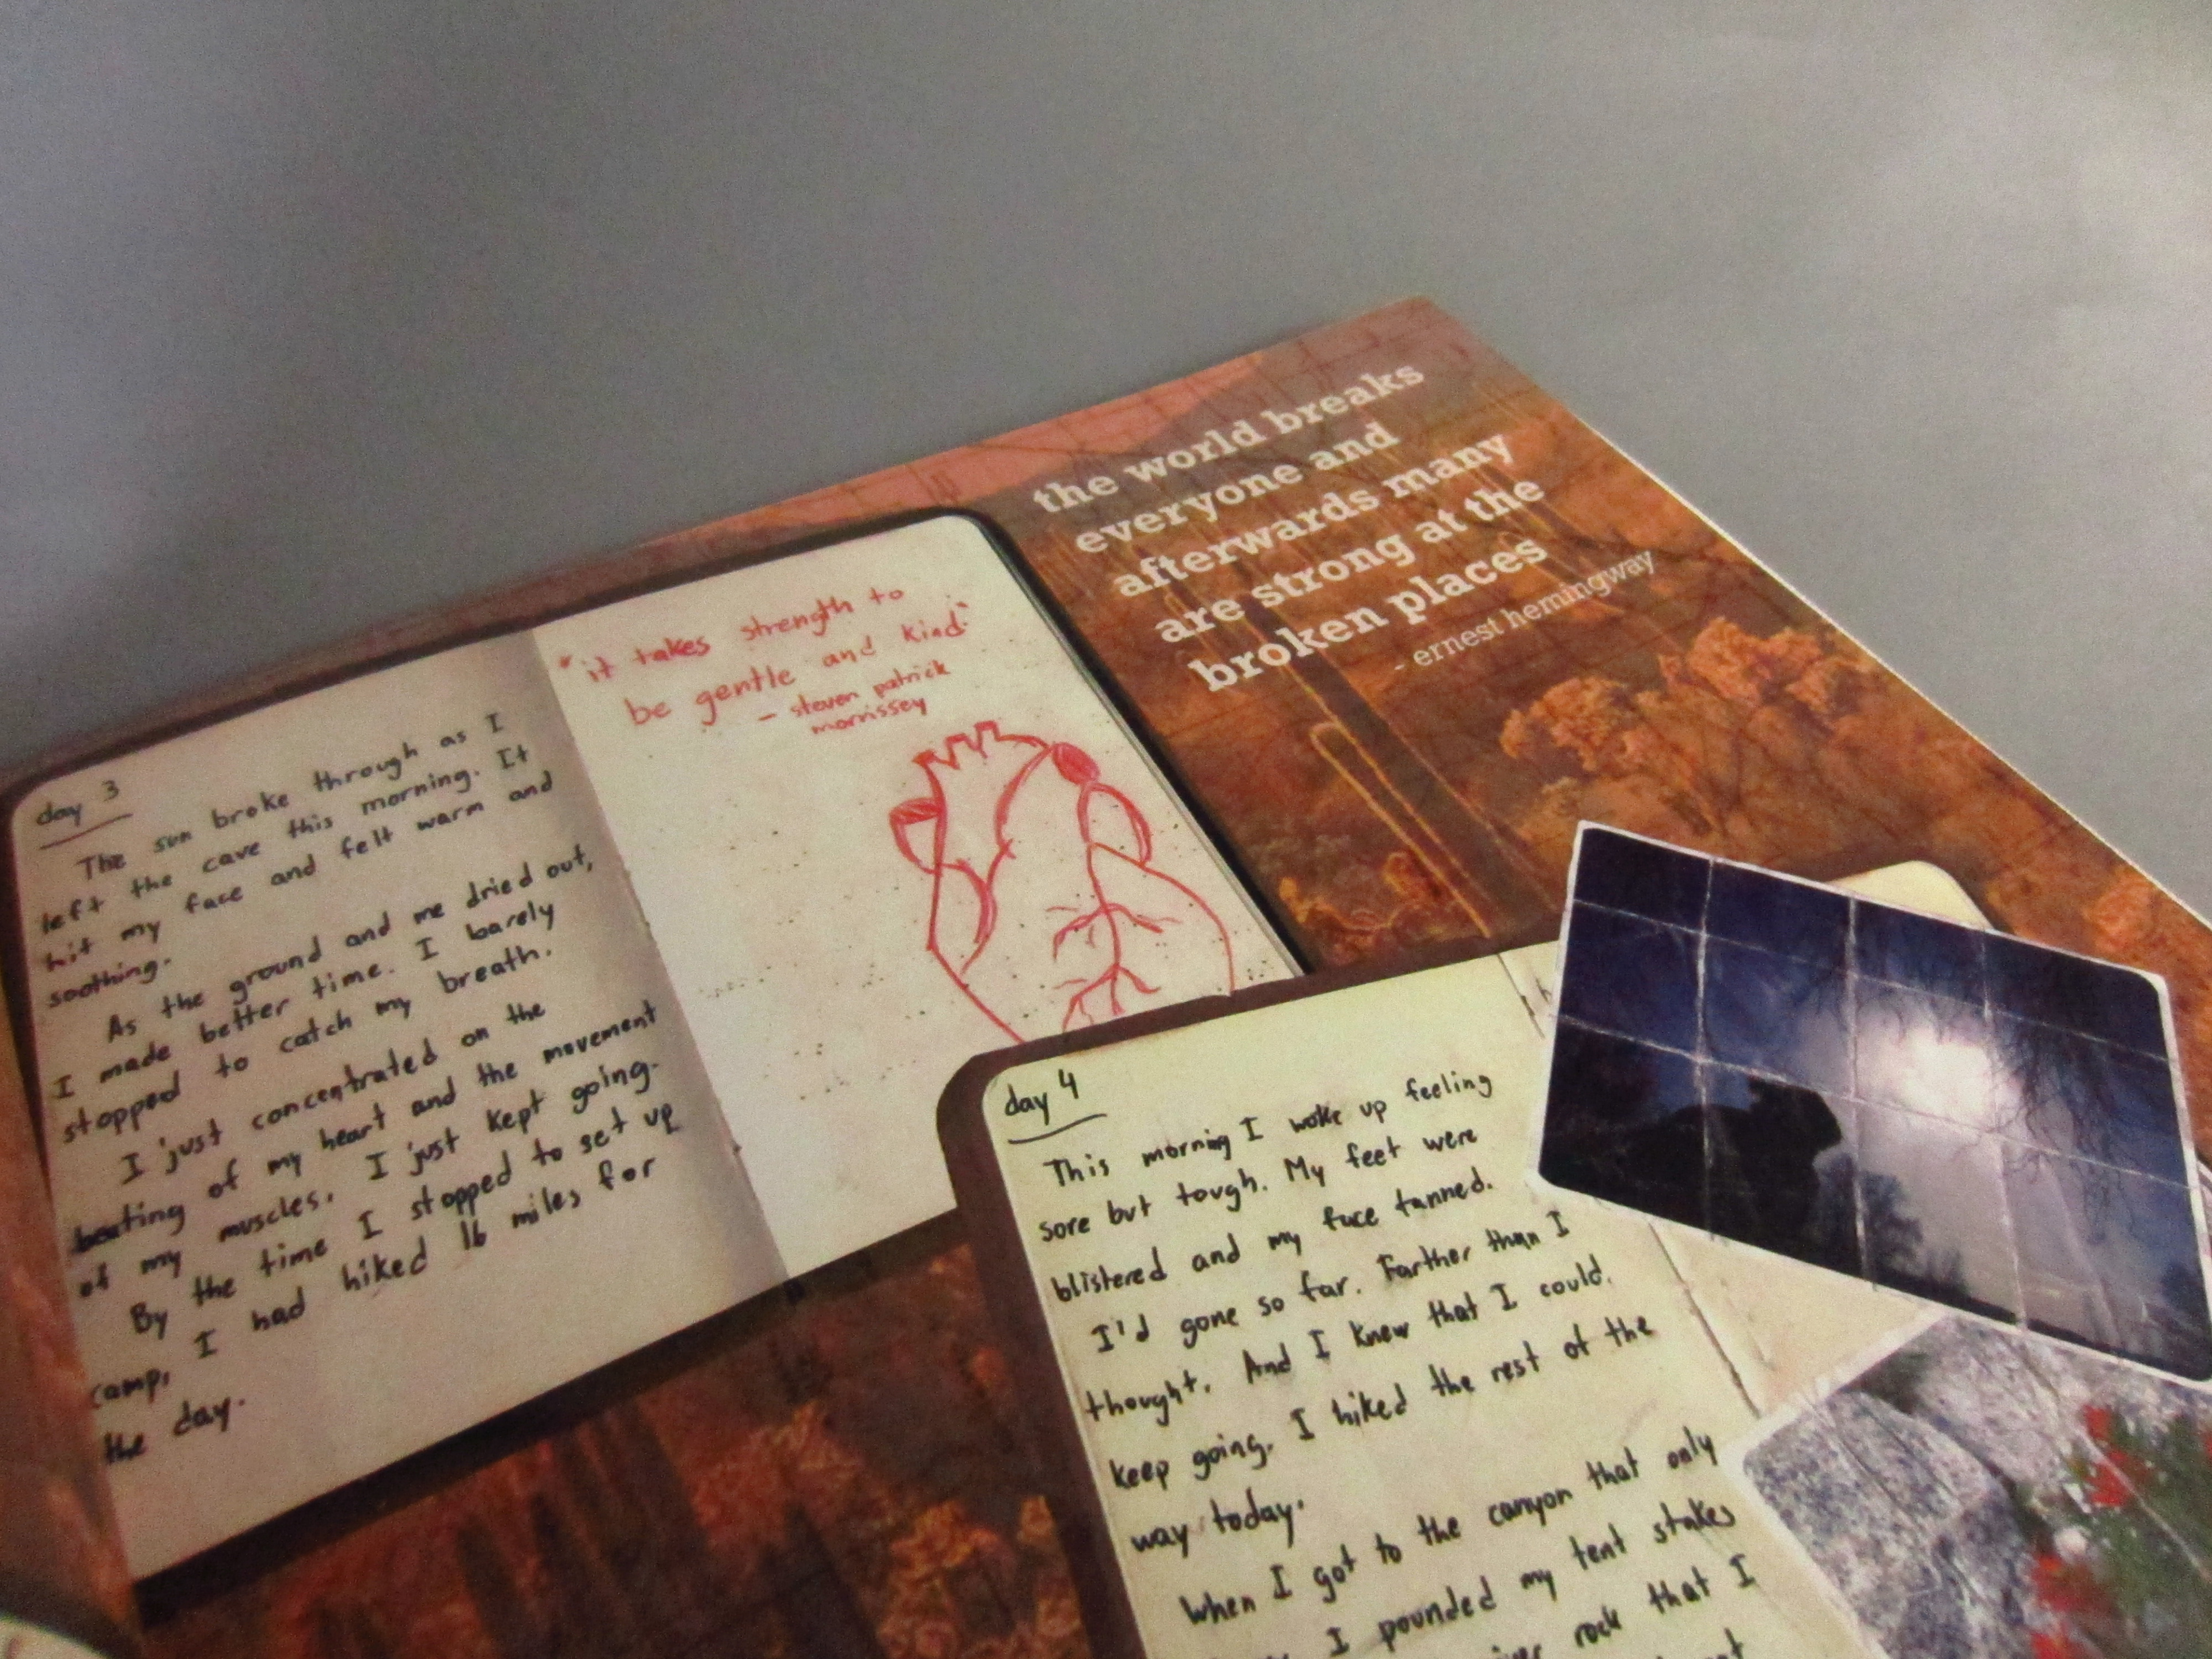 the world breaks
everyone and
afterwards many
are strong at the
broken places
- ernest hemingway
"it takes strength to
be gentle and kind"
- steven patrick
morrissey
day 3
The sun broke through as I
left the cave this morning. It
hit my face and felt warm and
soothing.
As the ground and me dried out,
I made better time. I barely
stopped to catch my breath.
I just concentrated on the
beating of my heart and the movement
of my muscles. I just kept going.
By the time I stopped to set up
camp, I had hiked 16 miles for
the day.
day 4
This morning I woke up feeling
sore but tough. My feet were
blistered and my face tanned.
I'd gone so far. Farther than I
thought. And I knew that I could
keep going. I hiked the rest of the
way today.
When I got to the canyon that only
I pounded my tent stakes
rock that I